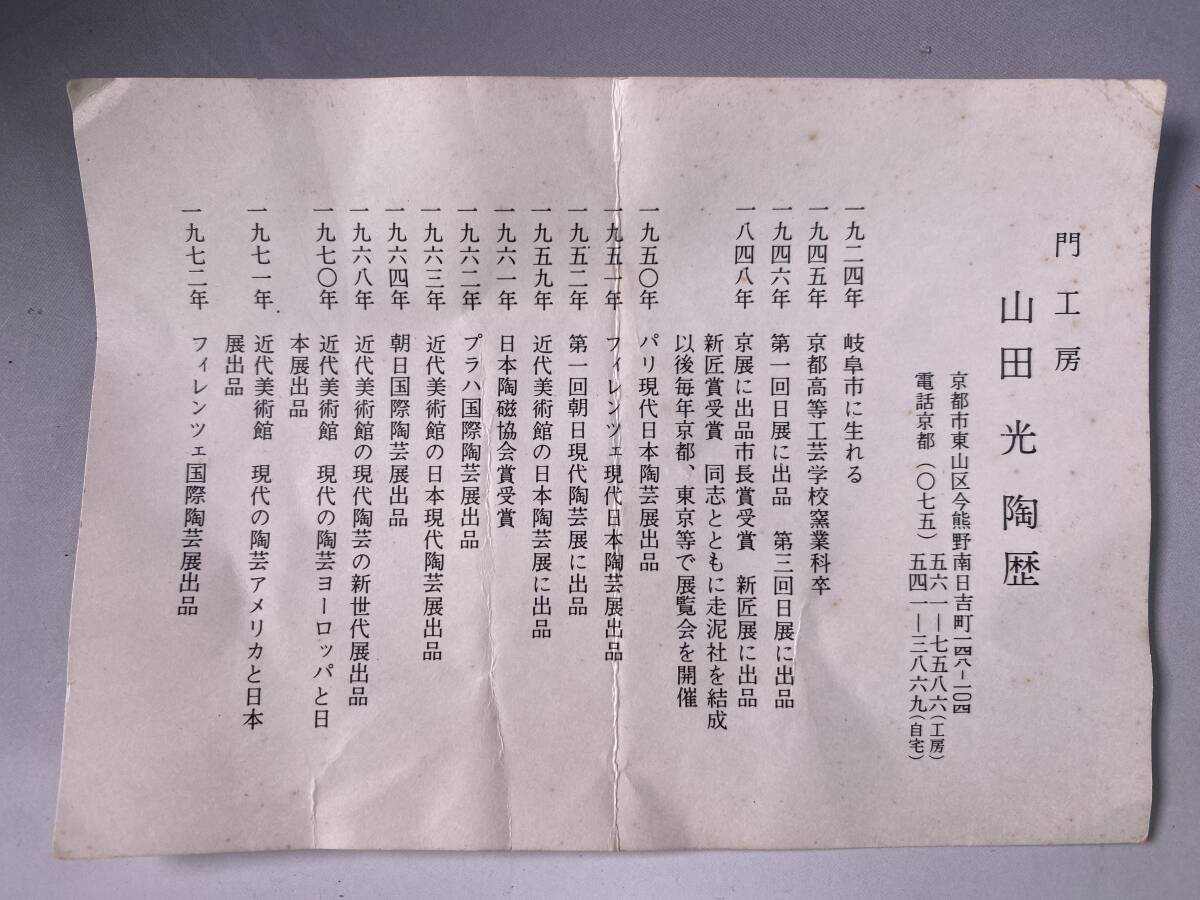 門工房
山田光陶歴
京都市東山区今熊野南日吉町一四八-一〇四
五六一―七五八六(工房)
電話京都(〇七五)五四一―三八六九(自宅)
一九二四年 岐阜市に生れる
一九四五年 京都高等工芸学校窯業科卒
一九四六年 第一回日展に出品 第三回日展に出品
一八四八年 京展に出品市長賞受賞 新匠展に出品
新匠賞受賞 同志とともに走泥社を結成
以後毎年京都、東京等で展覧会を開催
一九五〇年 パリ現代日本陶芸展出品
一九五一年 フィレンツェ現代日本陶芸展出品
一九五二年 第一回朝日現代陶芸展に出品
一九五九年 近代美術館の日本陶芸展に出品
一九六一年 日本陶磁協会賞受賞
一九六二年 プラハ国際陶芸展出品
一九六三年 近代美術館の日本現代陶芸展出品
一九六四年 朝日国際陶芸展出品
一九六八年 近代美術館の現代陶芸の新世代展出品
一九七〇年 近代美術館 現代の陶芸ヨーロッパと日
本展出品
一九七一年 近代美術館 現代の陶芸アメリカと日本
展出品
一九七二年 フィレンツェ国際陶芸展出品